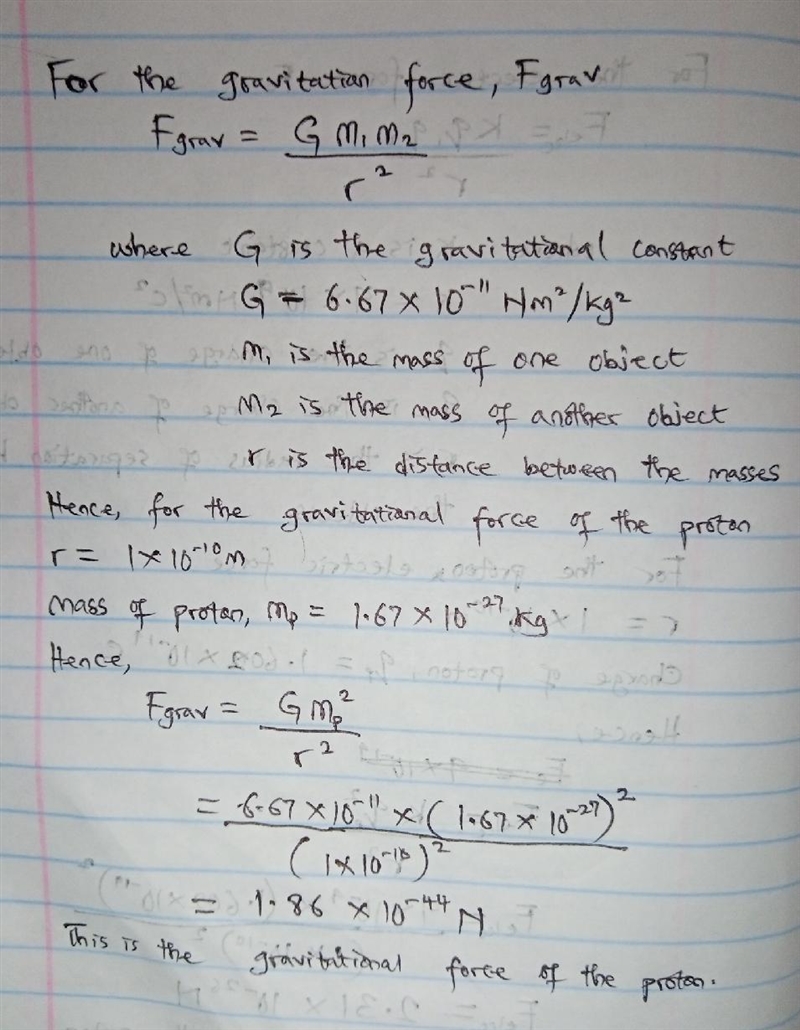 For the gravitation force, Fgrav
Fgrav = G m₁ m₂
r²
where G is the gravitational constant
G = 6.67 × 10⁻¹¹ Nm²/kg²
m₁ is the mass of one object
m₂ is the mass of another object
r is the distance between the masses
Hence, for the gravitational force of the proton
r = 1×10⁻¹⁰m
Mass of proton, mp = 1.67 × 10⁻²⁷ kg
Hence,
Fgrav = G mp²
r²
= 6.67 × 10⁻¹¹ × (1.67 × 10⁻²⁷)²
(1×10⁻¹⁰)²
= 1.86 × 10⁻⁴⁴ N
This is the gravitational force of the proton.